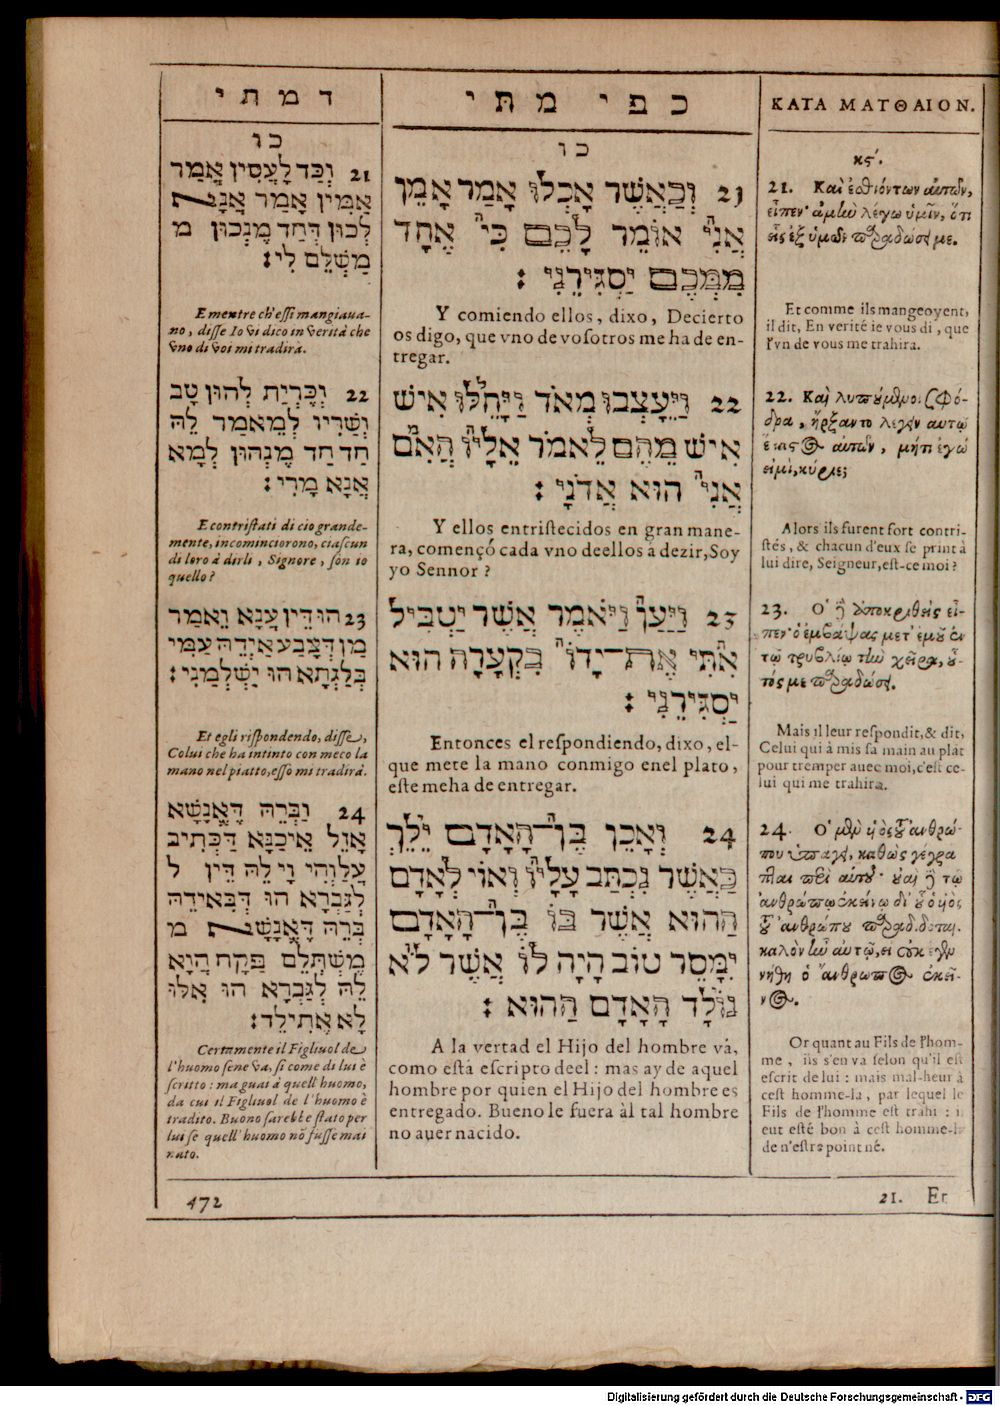 ד מ ת י
כו
21 וְכַד לָעֲסִין אֲמַר
אַמִּין אָמַר אֲנָא
לְכוּן דְּחַד מֶנְכוּן מ
מַשְׁלֵם לִי:
E mentre ch'essi mangiaua-
no, disse Io vi dico in verità che
vno di voi mi tradirà.
22 וְכֶרְיַת לְהוּן טָב
וְשַׁרִיו לְמֵאמַר לֵהּ
חַד חַד מֶנְהוּן לְמָא
אֲנָא מָרִי:
E contristati di cio grande-
mente, incominciorono, ciascun
di loro à dirli, Signore, son io
quello?
23 הוּ דֵין עֲנָא וֶאֲמַר
מַן דְּצָבַע אִידֵהּ עַמִּי
בְּלַגְתָא הוּ יַשְׁלְמַנִי:
Et egli rispondendo, disse,
Colui che ha intinto con meco la
mano nel piatto, esso mi tradirà.
24 וַבְרֵהּ דֶּאֱנָשָׁא
אָזֵל אֵיכַנָּא דַּכְתִיב
עֲלַוְהִי וָי לֵהּ דֵּין ל
לְגַבְרָא הוּ דְּבִאידֵהּ
בְּרֵהּ דֶּאֱנָשָׁא מ
מֶשְׁתְּלֵם פַּקָּח הֲוָא
לֵהּ לְגַבְרָא הוּ אֶלּוּ
לָא אֶתִילֵד:
Certamente il Figliuol de
l'huomo sene va, si come di lui è
scritto: ma guai à quell' huomo,
da cui il Figliuol de l'huomo è
tradito. Buono sarebbe stato per
lui se quell' huomo nõ fusse mai
nato.
כ פ י מ ת י
כו
23 וְכַאֲשֶׁר אָכְלוּ אָמַר אָמֵן
אֲנִי אוֹמֵר לָכֶם כִּי אֶחָד
מִמְּכֶם יַסְגִּירֵנִי:
Y comiendo ellos, dixo, Decierto
os digo, que vno de vosotros me ha de en-
tregar.
22 וַיֵּעָצְבוּ מְאֹד וַיָּחֵלּוּ אִישׁ
אִישׁ מֵהֶם לֵאמֹר אֵלָיו הַאִם
אֲנִי הוּא אֲדֹנָי:
Y ellos entristecidos en gran mane-
ra, començó cada vno deellos à dezir, Soy
yo Sennor?
23 וַיַּעַן וַיֹּאמֶר אֲשֶׁר יַטְבִּיל
אִתִּי אֶת־יָדוֹ בִּקְעָרָה הוּא
יַסְגִּירֵנִי:
Entonces el respondiendo, dixo, el-
que mete la mano conmigo enel plato,
este meha de entregar.
24 וְאָכֵן בֶּן־הָאָדָם יֵלֵךְ
כַּאֲשֶׁר נִכְתַּב עָלָיו וְאוֹי לְאָדָם
הַהוּא אֲשֶׁר בּוֹ בֶּן־הָאָדָם
יִמָּסֵר טוֹב הָיָה לוֹ אֲשֶׁר לֹא
נוֹלָד הָאָדָם הַהוּא:
A la vertad el Hijo del hombre vá,
como está escripto deel: mas ay de aquel
hombre por quien el Hijo del hombre es
entregado. Bueno le fuera àl tal hombre
no auer nacido.
ΚΑΤΑ ΜΑΤΘΑΙΟΝ.
κϛʹ.
21. Καὶ ἐσθιόντων αὐτῶν,
εἶπεν· ἀμὴν λέγω ὑμῖν, ὅτι
εἷς ἐξ ὑμῶν παραδώσει με.
Et comme ils mangeoyent,
il dit, En verité ie vous di, que
l'vn de vous me trahira.
22. Καὶ λυπούμενοι σφό-
δρα, ἤρξαντο λέγειν αυτῷ
ἕκαστος αὐτῶν, μήτι ἐγώ
εἰμι, κύριε;
Alors ils furent fort contri-
stés, & chacun d'eux se print à
lui dire, Seigneur, est-ce moi?
23. Ὁ δὲ ἀποκριθεὶς εἶ-
πεν· ὁ ἐμβάψας μετ' ἐμοῦ ἐν
τῷ τρυβλίῳ τὴν χεῖρα, οὗ-
τός με παραδώσει.
Mais il leur respondit, & dit,
Celui qui à mis sa main au plat
pour tremper auec moi, c'est ce-
lui qui me trahira.
24. Ὁ μὲν υἱὸς τοῦ ἀνθρώ-
που ὑπάγει, καθὼς γέγρα
πται περὶ αὐτοῦ· οὐαὶ δὲ τῷ
ἀνθρώπῳ ἐκείνῳ δι' οὗ ὁ υἱὸς
τοῦ ἀνθρώπου παραδίδοται.
καλὸν ἦν αὐτῷ, εἰ οὐκ ἐγεν
νήθη ὁ ἄνθρωπος ἐκεῖ-
νος.
Or quant au Fils de l'hom-
me, ils s'en va selon qu'il est
escrit de lui: mais mal-heur à
cest homme-la, par lequel le
Fils de l'homme est trahi: il
eut esté bon à cest homme-l
de n'estre point né.
472
21. Et
Digitalisierung gefördert durch die Deutsche Forschungsgemeinschaft - DFG